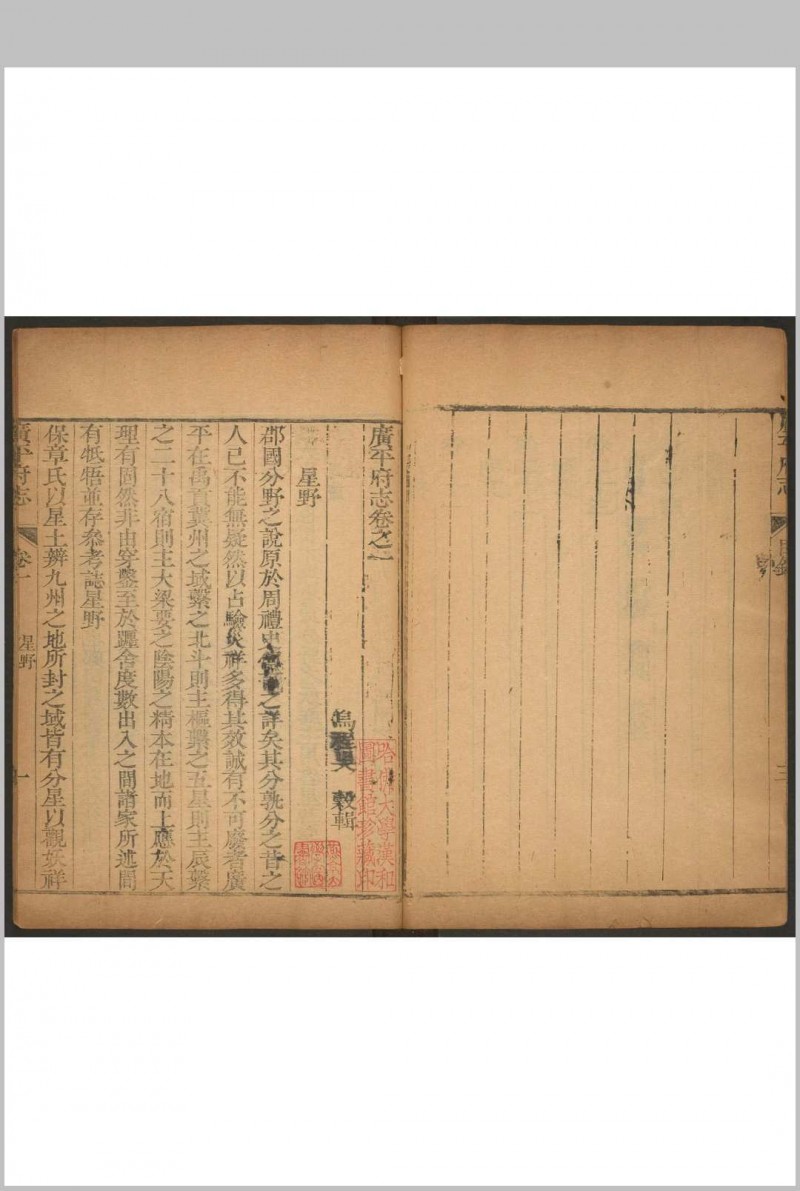 廣平府志
目錄
三
廣平府志卷之一
烏程吳 穀輯
哈佛大學漢和
圖書館珍藏印
星野
郡國分野之說原於周禮史 之詳矣其分孰分之昔之
人已不能無疑然以占驗災祥多得其效誠有不可廢者廣
平在禹貢冀州之域繫之北斗則主樞繫之五星則主辰繫
之二十八宿則主大梁要之陰陽之精本在地而上應於天
理有固然非由穿鑿至於躔舍度數出入之間諸家所述間
有牴牾並存參考誌星野
保章氏以星土辨九州之地所封之域皆有分星以觀妖祥
廣平府志
卷一
星野
一